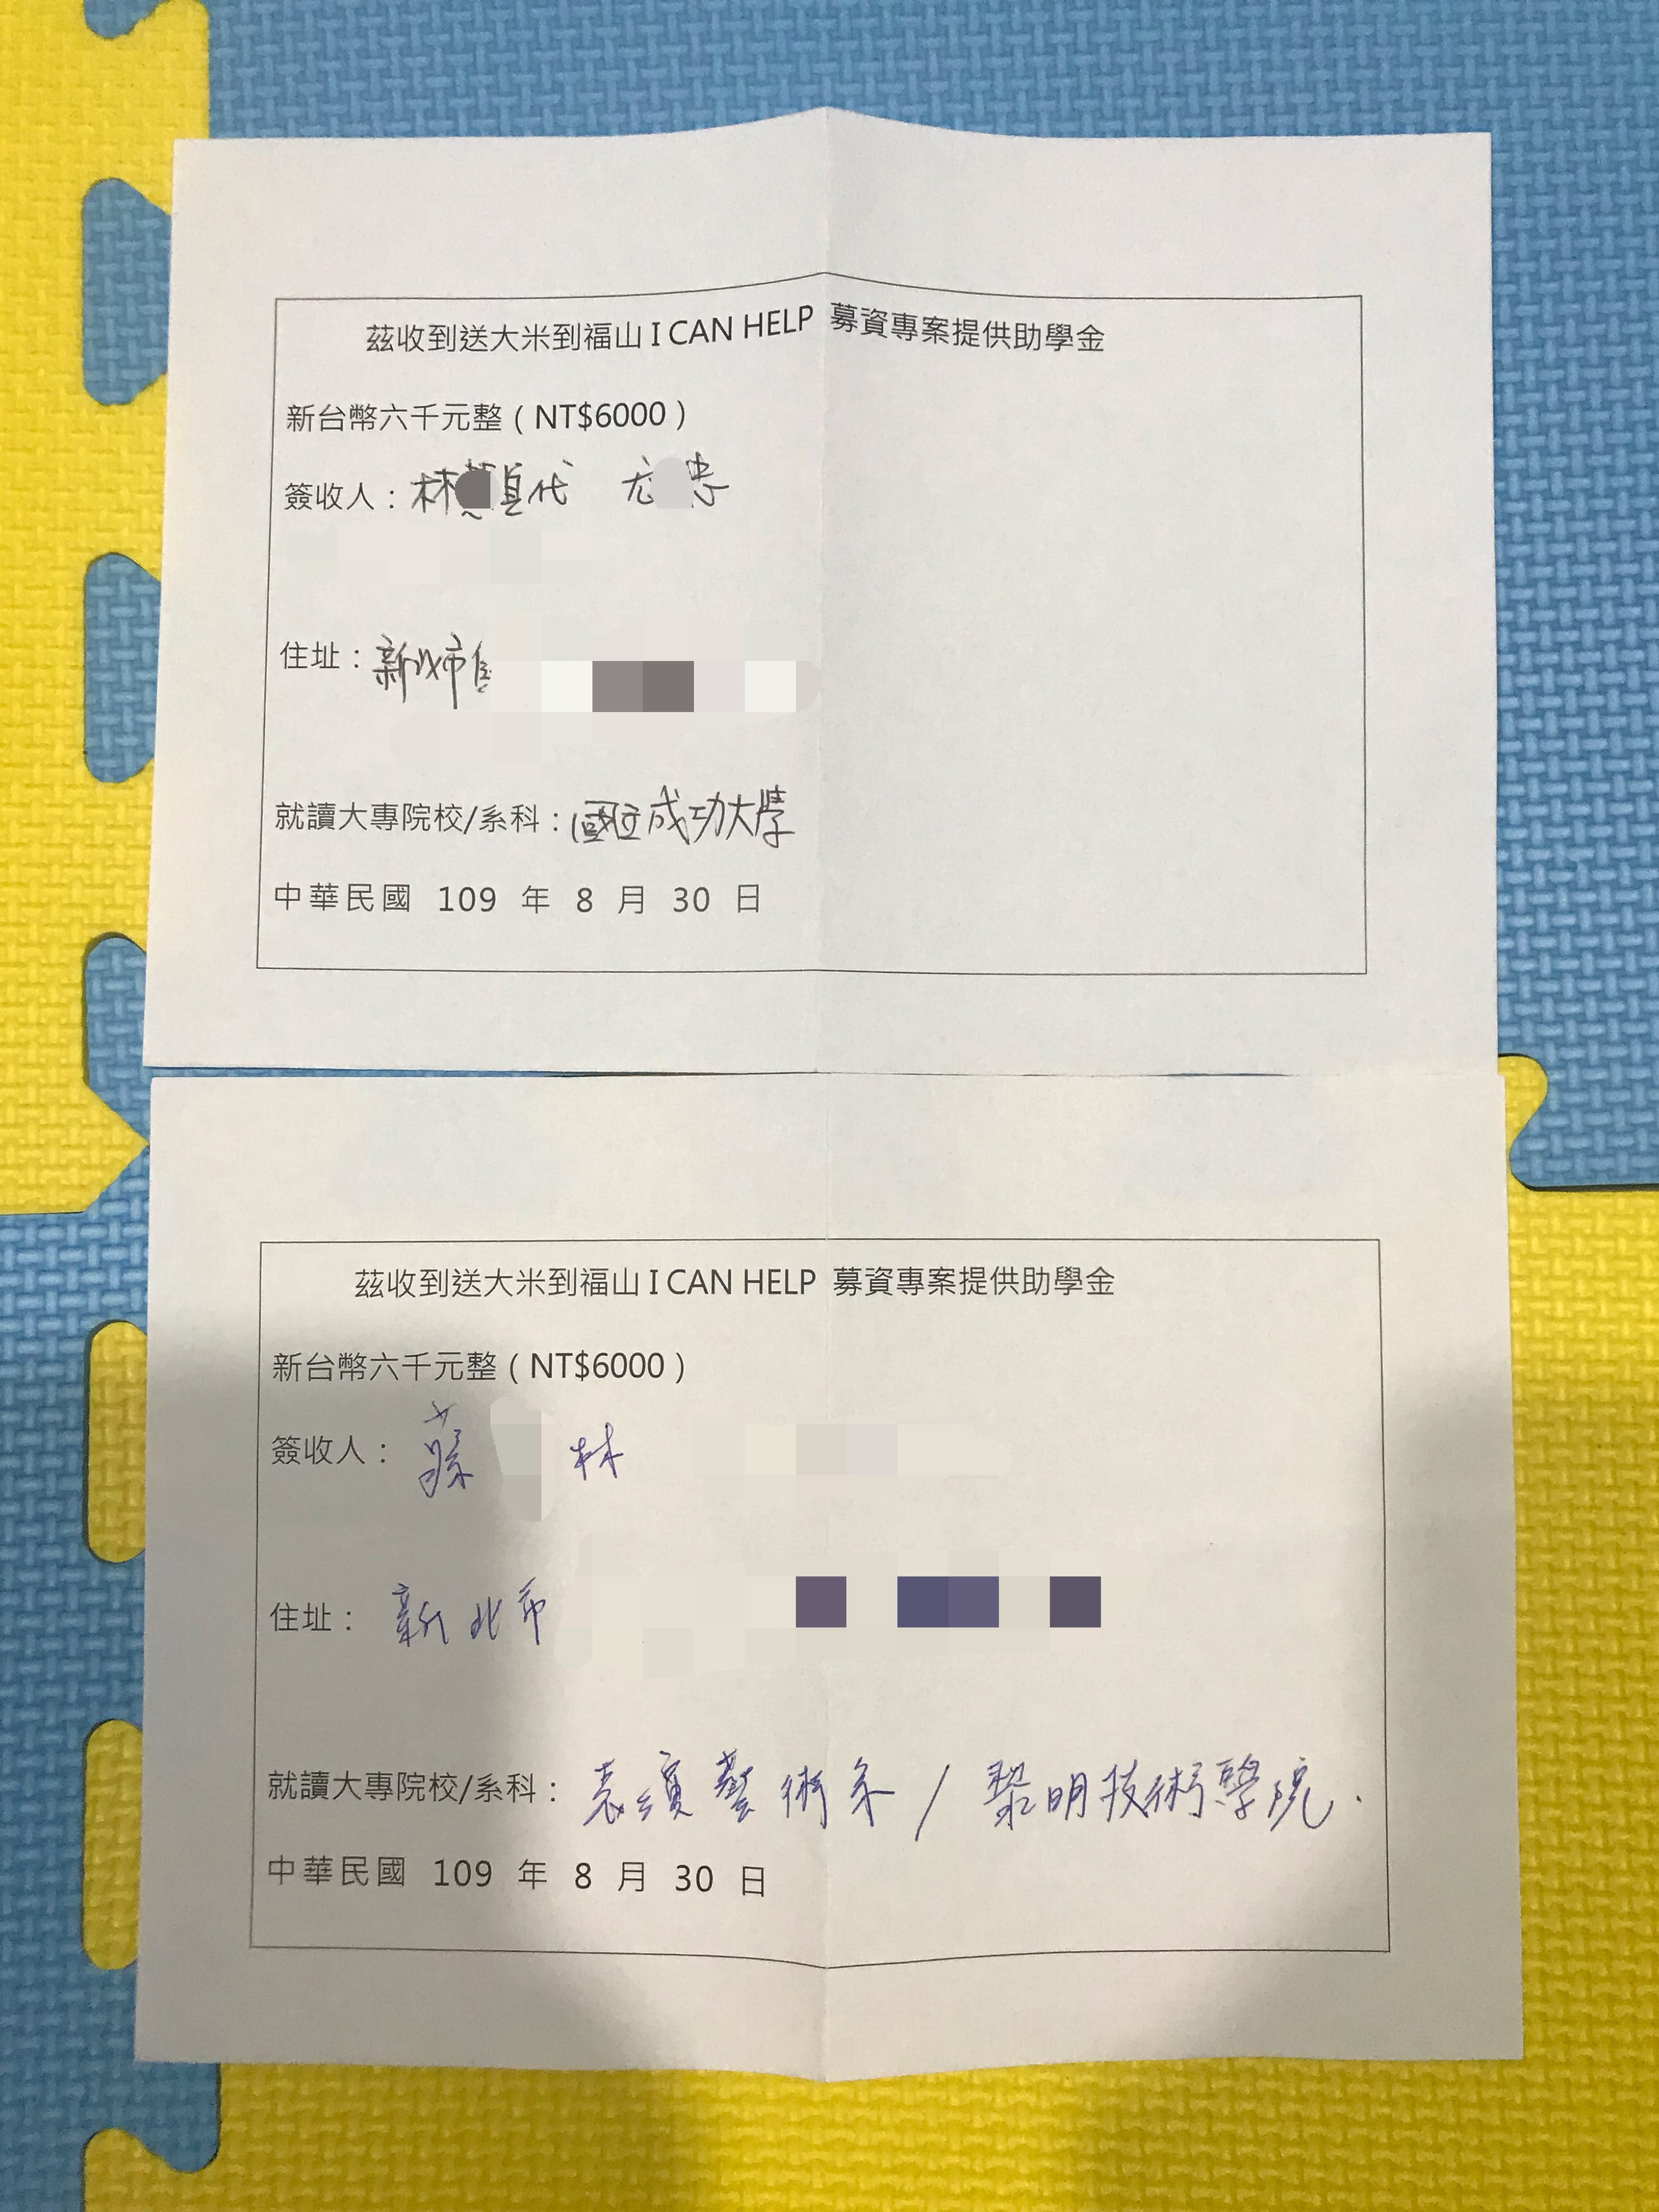 茲收到送大米到福山 I CAN HELP 募資專案提供助學金
新台幣六千元整（NT$6000）
簽收人：林 貞代 尤 忠
住址：新北市
就讀大專院校/系科：國立成功大學
中華民國 109 年 8 月 30 日
茲收到送大米到福山 I CAN HELP 募資專案提供助學金
新台幣六千元整（NT$6000）
簽收人： 蘇 林
住址： 新北市
就讀大專院校/系科： 表演藝術系 / 黎明技術學院.
中華民國 109 年 8 月 30 日